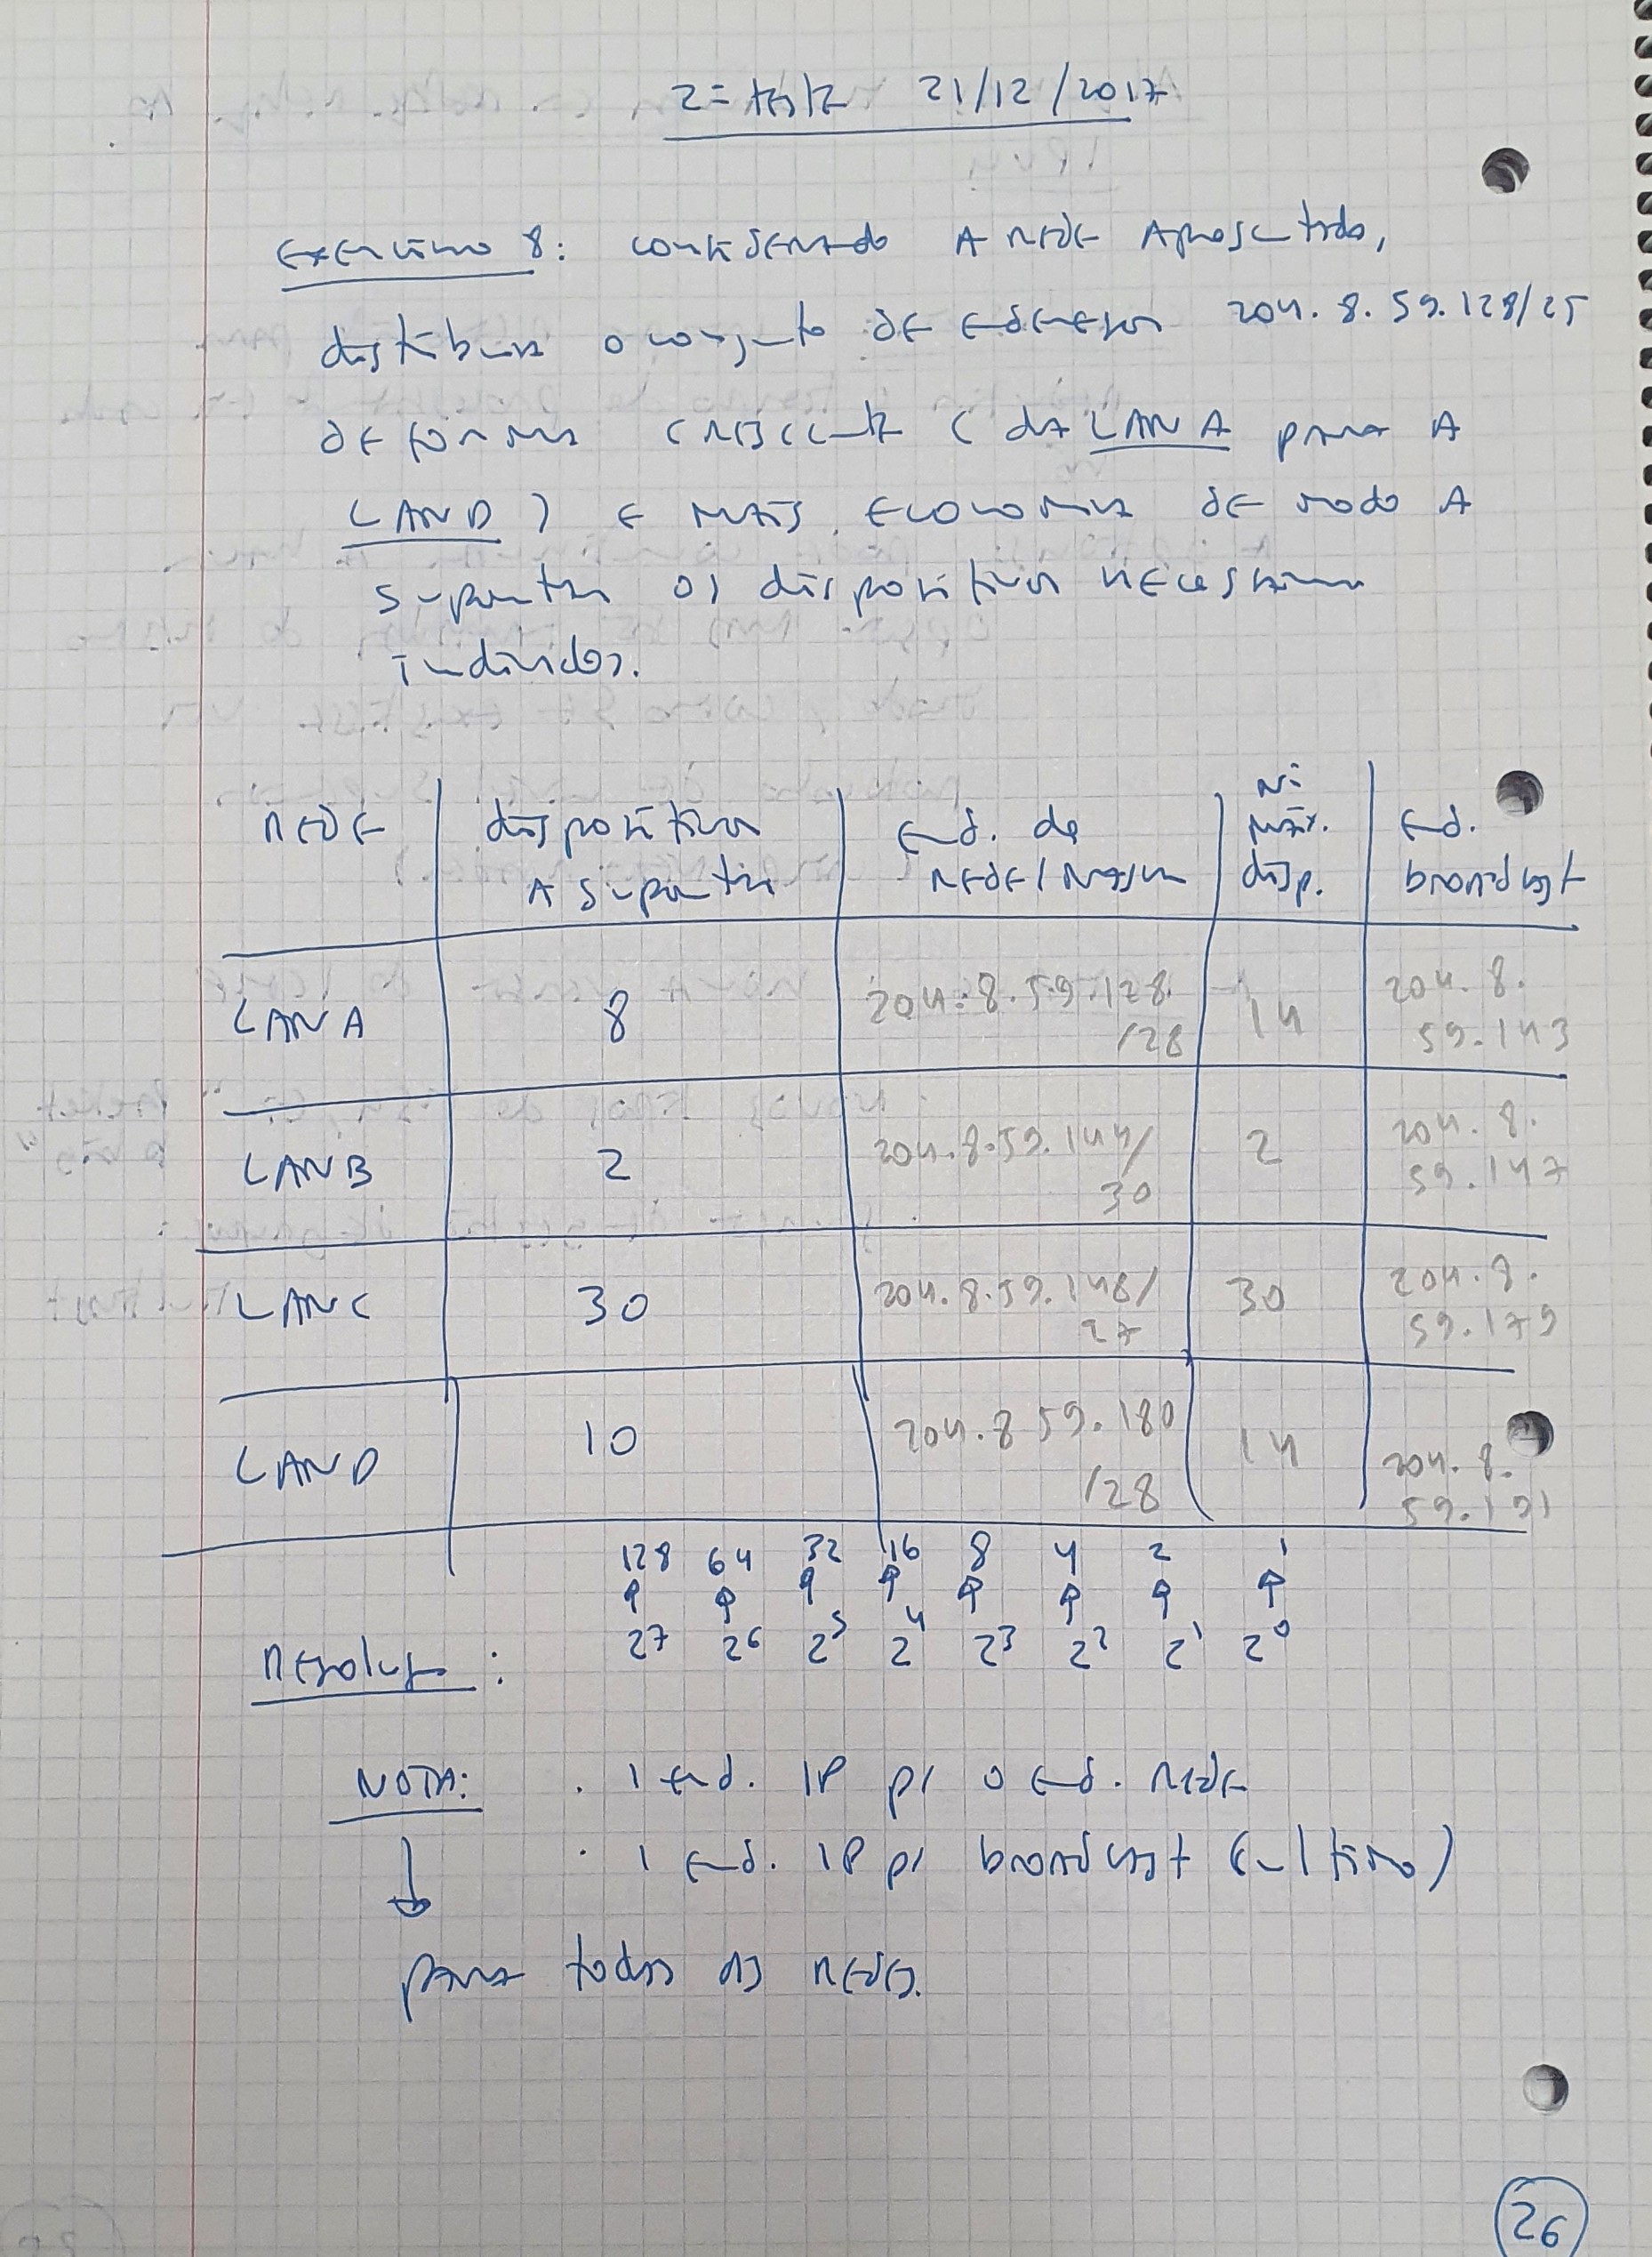 2º teste 21/12/2017
Exercício 8: considerando A rede Apresentada,
distribua o conjunto de Endereços 204.8.59.128/25
de forma crescente (da LAN A para A
LAN D) e mais economica de modo A
suportar os dispositivos necessários
indicados.
Rede | dispositivos A suportar | End. de rede/máscara | Nº máx. disp. | End. broadcast
LAN A | 8 | 204.8.59.128 /28 | 14 | 204.8.59.143
LAN B | 2 | 204.8.59.144/30 | 2 | 204.8.59.147
LAN C | 30 | 204.8.59.148/27 | 30 | 204.8.59.179
LAN D | 10 | 204.8 59.180 /28 | 14 | 204.8.59.191
128 64 32 16 8 4 2 1
↑ ↑ ↑ ↑ ↑ ↑ ↑ ↑
2⁷ 2⁶ 2⁵ 2⁴ 2³ 2² 2¹ 2⁰
Resolução:
NOTA: . 1 End. IP p/ o End. rede
. 1 End. IP p/ broadcast (último)
↓
para todas As redes.
26